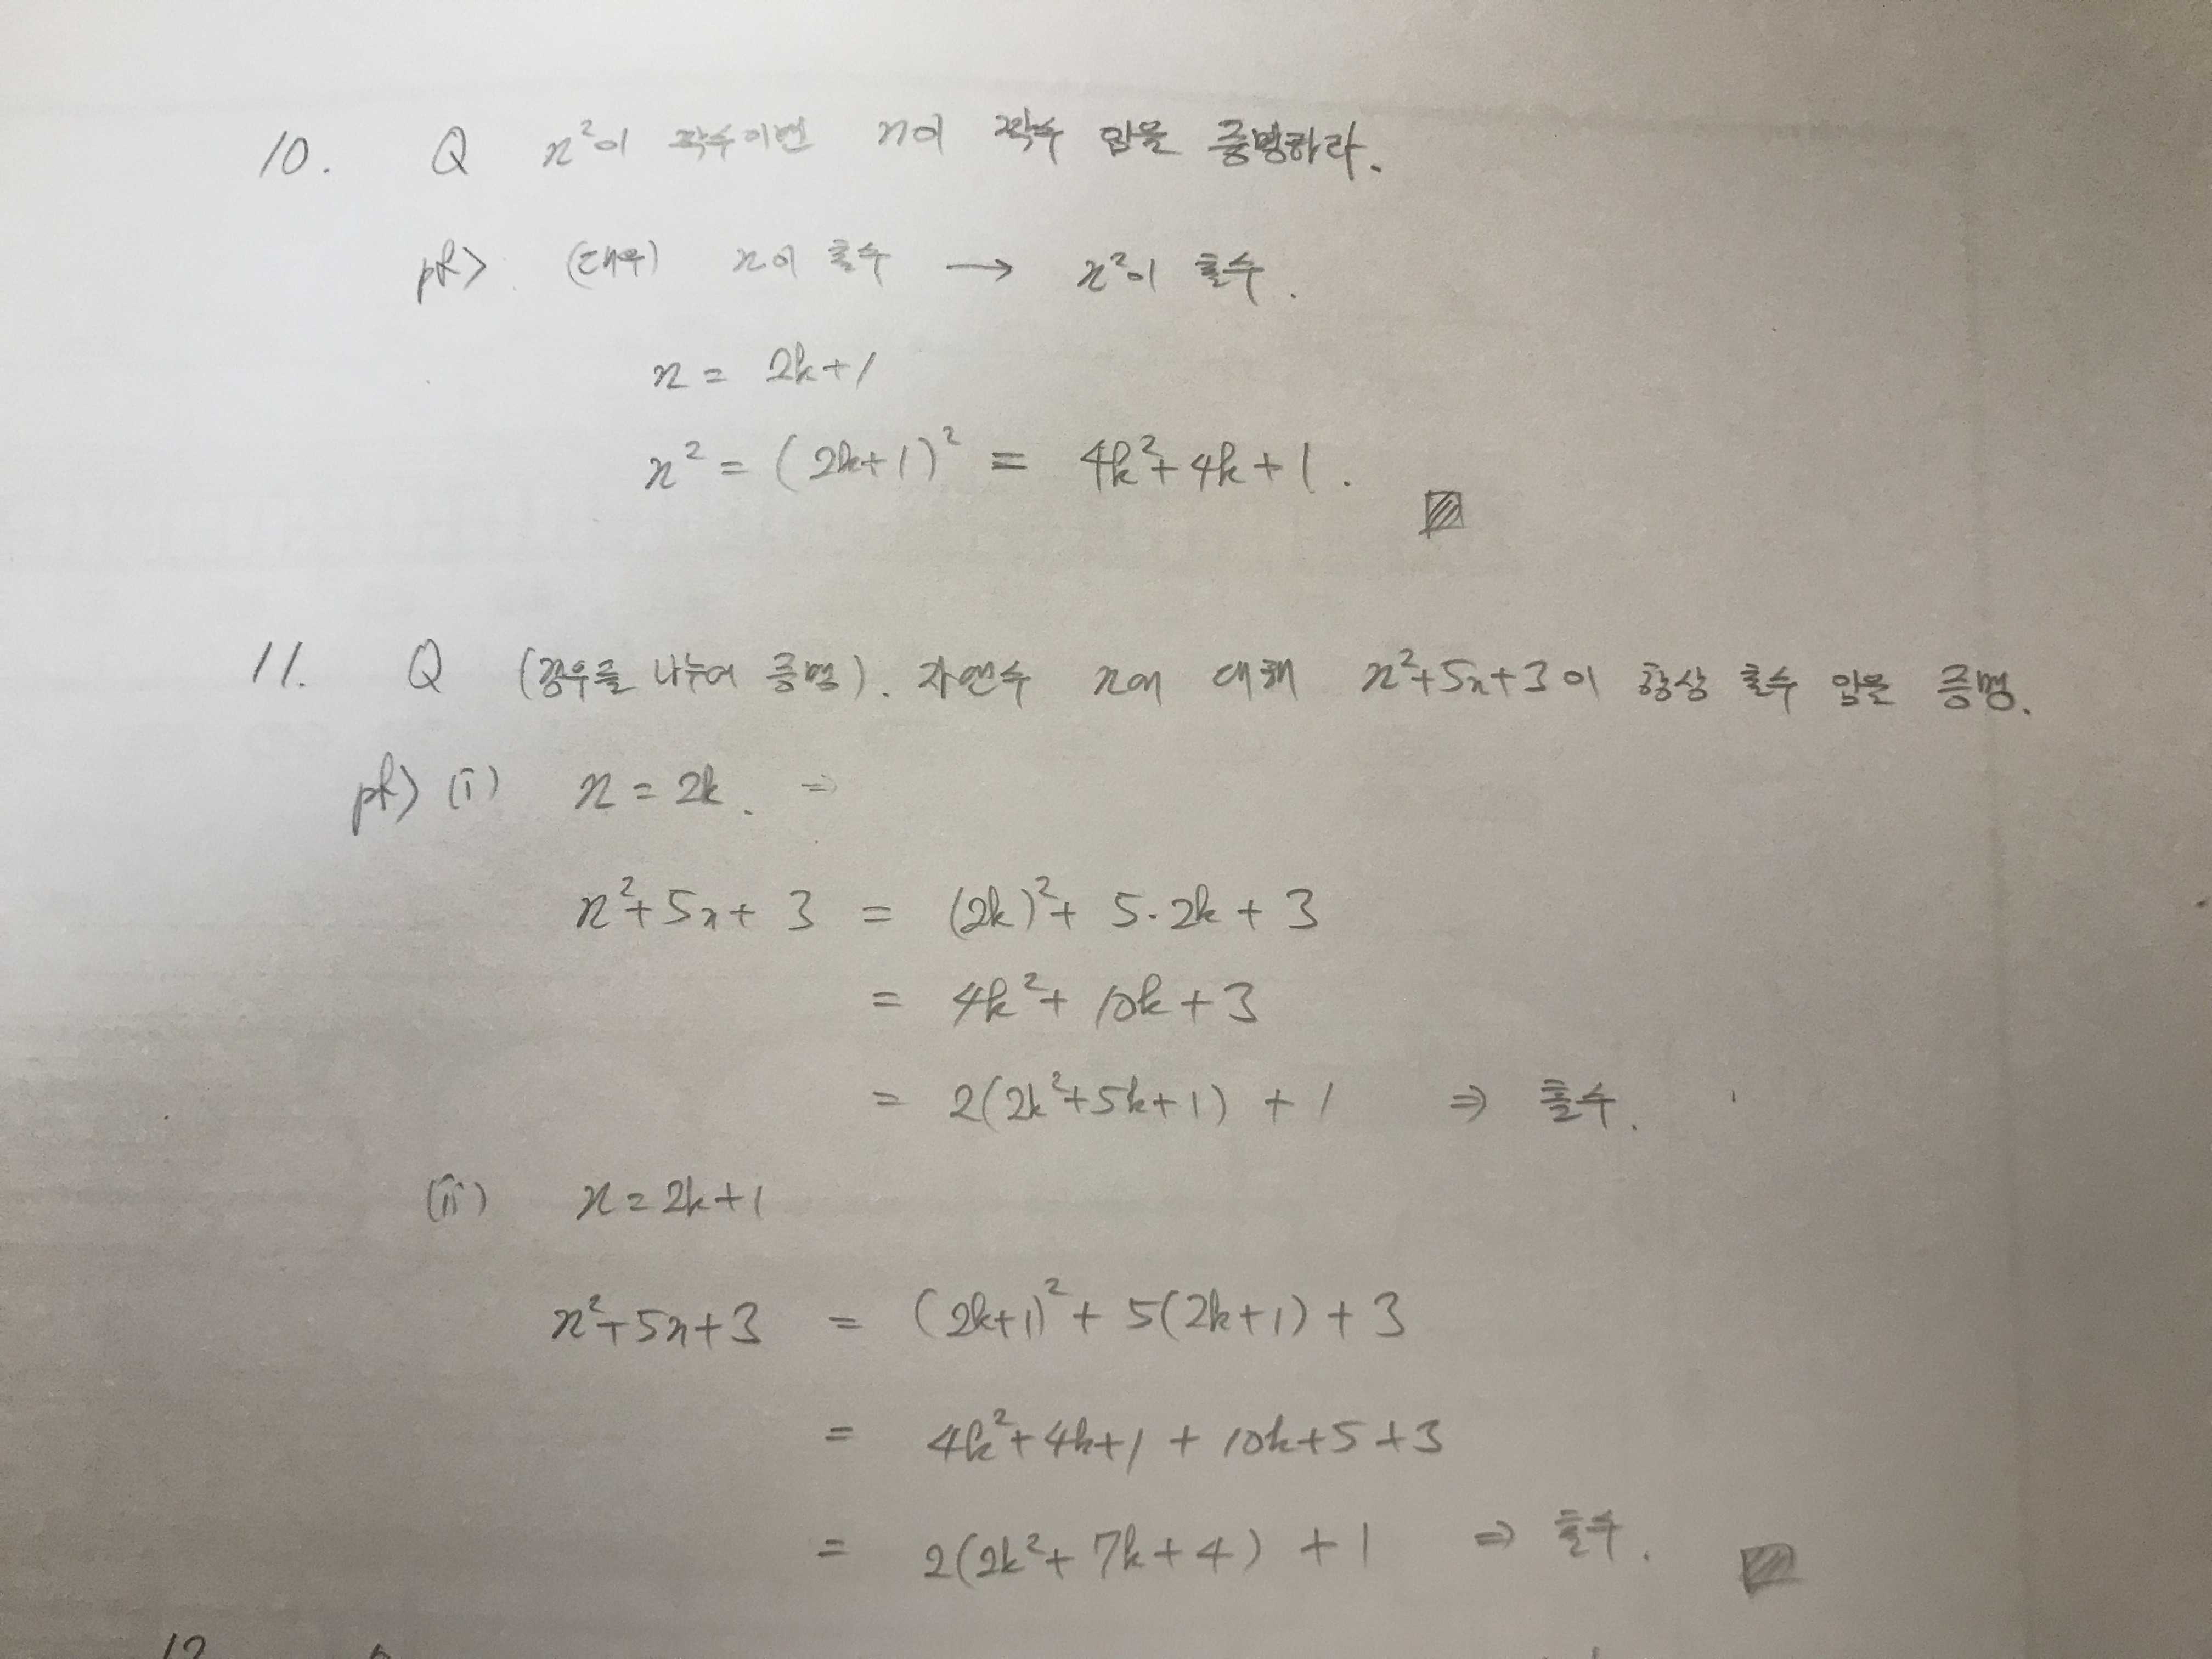 10. Q n²이 짝수이면 n이 짝수 임을 증명하라.
pf> (대우) n이 홀수 → n²이 홀수.
n = 2k+1
n² = (2k+1)² = 4k²+4k+1.
11. Q (경우를 나누어 증명). 자연수 n에 대해 n²+5n+3이 항상 홀수 임을 증명.
pf> (i) n = 2k. ⇒
n²+5n+3 = (2k)²+ 5·2k+3
= 4k²+ 10k+3
= 2(2k²+5k+1) + 1 ⇒ 홀수.
(ii) n=2k+1
n²+5n+3 = (2k+1)²+ 5(2k+1)+3
= 4k²+4k+1 + 10k+5+3
= 2(2k²+7k+4) +1 ⇒ 홀수.
12